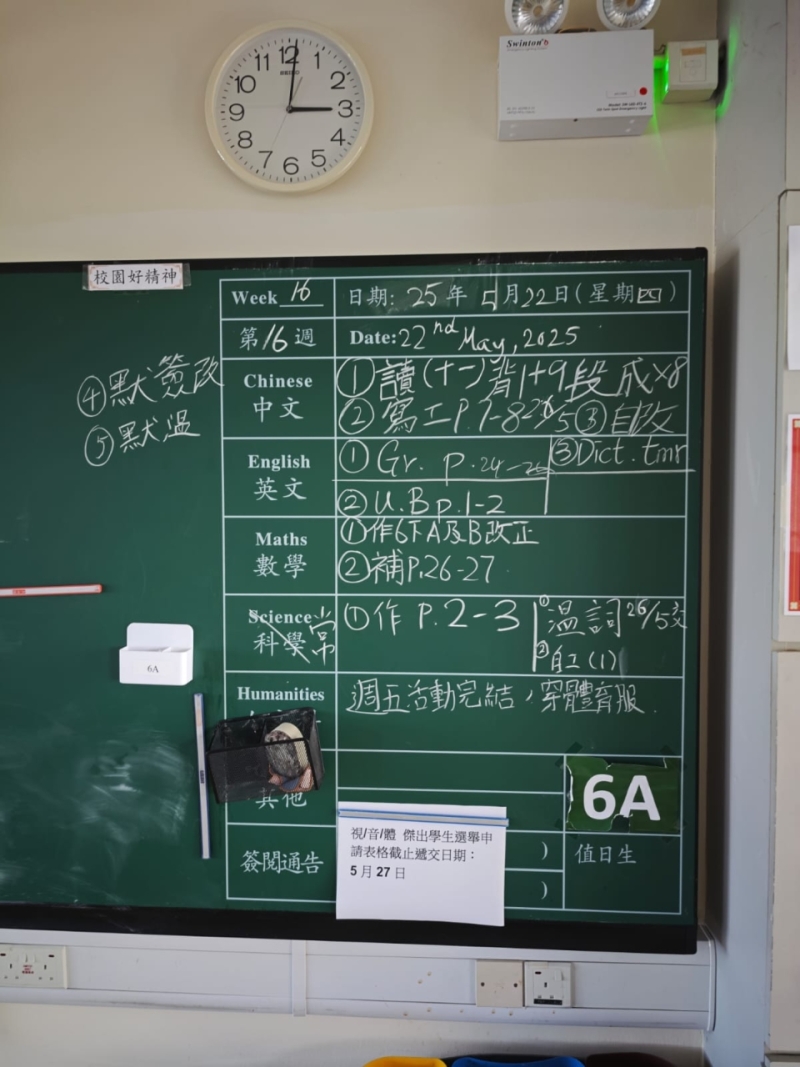 12 1 2 3 4 5 6 7 8 9 10 11
SEIKO
Swinton
校園好精神
Week 16
日期: 25年 5月22日(星期四)
第16週
Date: 22nd May, 2025
④默簽改
⑤默溫
Chinese
中文
①讀(十一)背1+9段成×8
②寫工P.7-8 26/5 ③自改
English
英文
①Gr. p.24-
③Dict. tmr
②U.B p.1-2
Maths
數學
①作6下A及B改正
②補P.26-27
Science
科學 常
①作 P.2-3
①溫詞 26/5交
②自工(1)
6A
Humanities
週五活動完結,穿體育服
其他
6A
簽閱通告
)
)
值日生
視/音/體 傑出學生選舉申
請表格截止遞交日期:
5 月 27 日